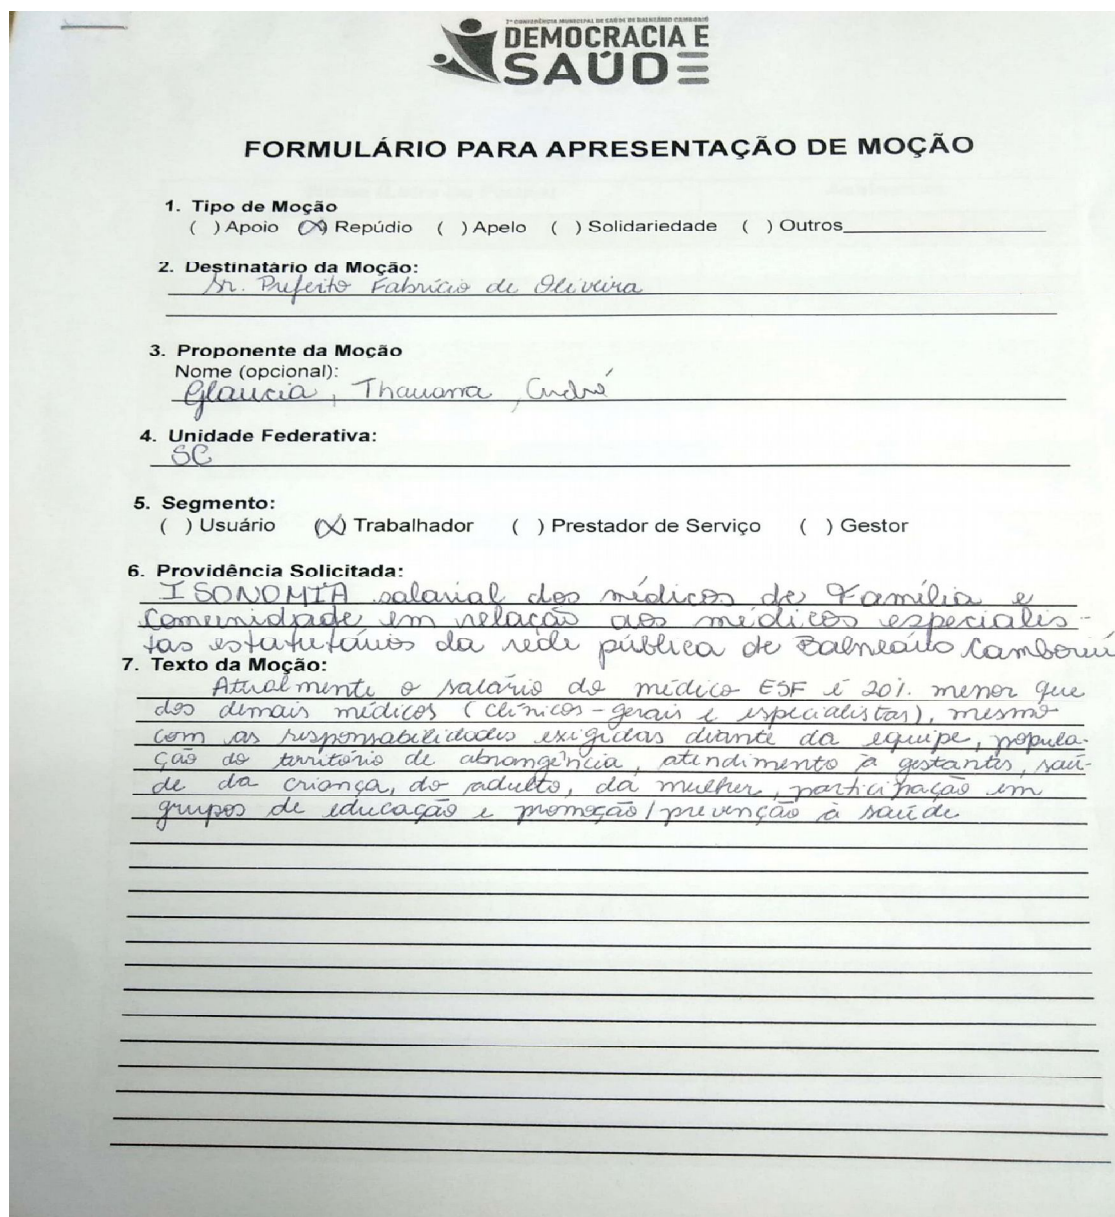 7ª CONFERÊNCIA MUNICIPAL DE SAÚDE DE BALNEÁRIO CAMBORIÚ
DEMOCRACIA E
SAÚDE
FORMULÁRIO PARA APRESENTAÇÃO DE MOÇÃO
1. Tipo de Moção
( ) Apoio (X) Repúdio ( ) Apelo ( ) Solidariedade ( ) Outros
2. Destinatário da Moção:
Sr. Prefeito Fabrício de Oliveira
3. Proponente da Moção
Nome (opcional):
Glaucia, Thauana, André
4. Unidade Federativa:
SC
5. Segmento:
( ) Usuário (X) Trabalhador ( ) Prestador de Serviço ( ) Gestor
6. Providência Solicitada:
ISONOMIA salarial dos médicos de Família e
Comunidade em relação aos médicos especialis-
tas estatutários da rede pública de Balneário Camboriú
7. Texto da Moção:
Atualmente o salário do médico ESF é 20% menor que
dos demais médicos (clínicos-gerais e especialistas), mesmo
com as responsabilidades exigidas diante da equipe, popula-
ção do território de abrangência, atendimento a gestantes, saú-
de da criança, do adulto, da mulher, participação em
grupos de educação e promoção/prevenção à saúde